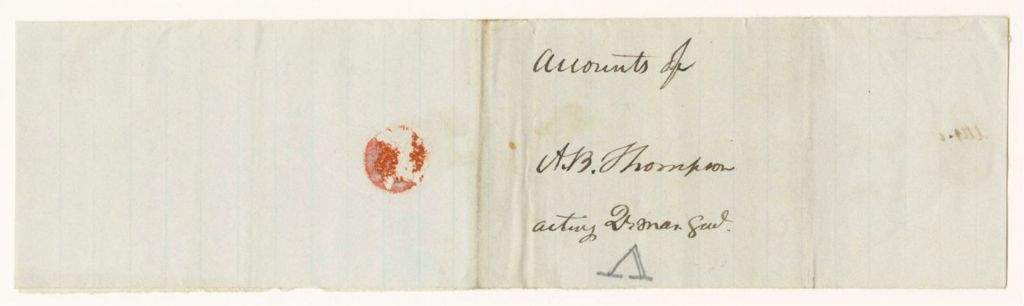 Accounts of
A.B. Thompson
acting Qr. Mas. Genl.